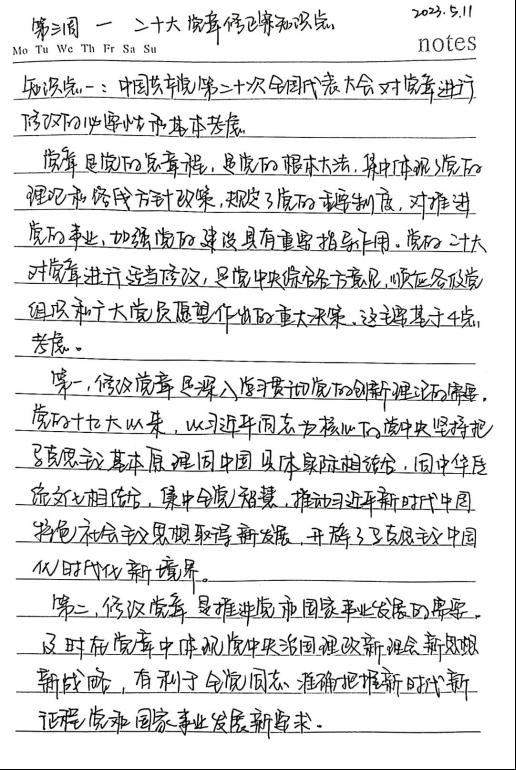 2023.5.11
第三周 一 二十大党章修正案知识点
Mo Tu We Th Fr Sa Su
notes
知识点一：中国共产党第二十次全国代表大会对党章进行
修改的必要性和基本考虑
党章是党的总章程，是党的根本大法，集中体现了党的
理论和路线方针政策，规定了党的重要制度，对推进
党的事业，加强党的建设具有重要指导作用。党的二十大
对党章进行适当修改，是党中央综合各方意见，顺应各级党
组织和广大党员愿望作出的重大决策。这主要基于4点
考虑。
第一，修改党章是深入学习贯彻党的创新理论的需要。
党的十九大以来，以习近平同志为核心的党中央坚持把
马克思主义基本原理同中国具体实际相结合，同中华传
统文化相结合，集中全党智慧，推动习近平新时代中国
特色社会主义思想取得新发展，开辟了马克思主义中国
化时代化新境界。
第二，修改党章是推进党和国家事业发展的需要。
及时在党章中体现党中央治国理政新理念新思想
新战略，有利于全党同志准确把握新时代新
征程党和国家事业发展新要求。